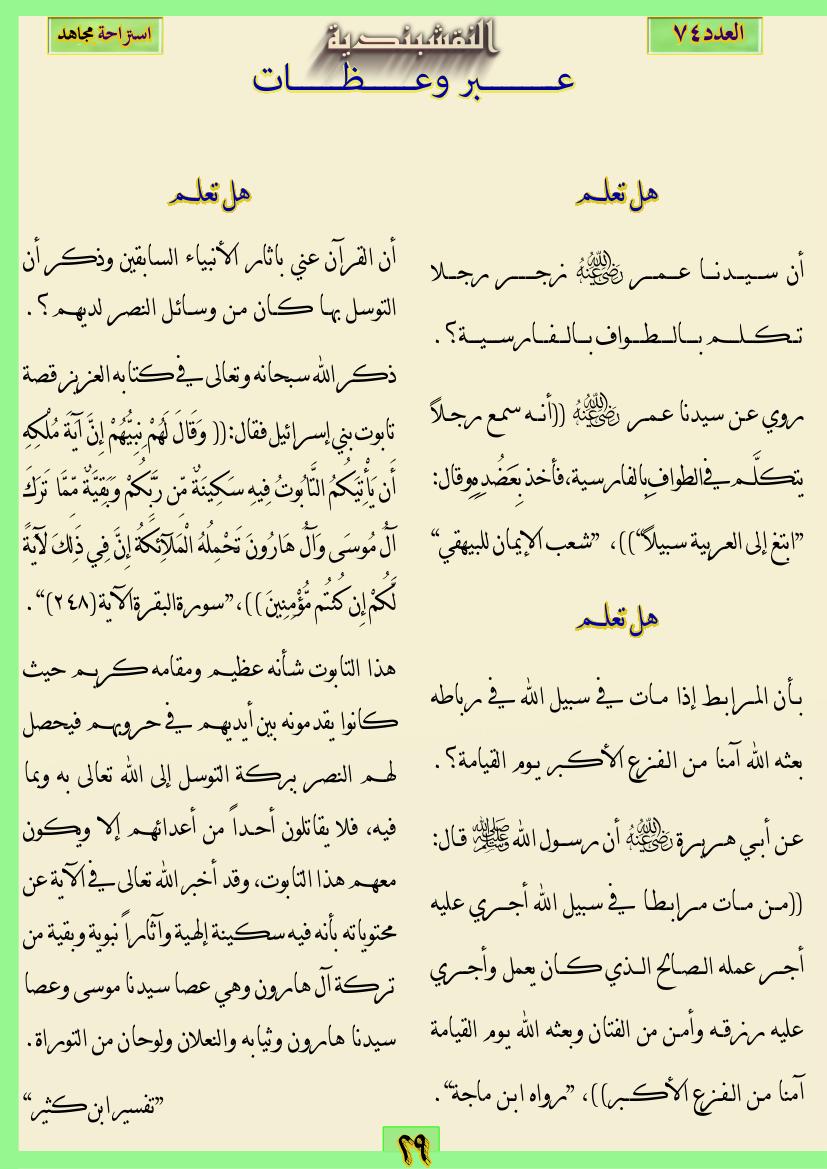 العدد ٧٤
النقشبندية
استراحة مجاهد
عـــبر وعـــظـــات
هل تعلم
أن سيدنا عمر رضي الله عنه زجر رجلا
تكلم بالطواف بالفارسية؟.
روي عن سيدنا عمر رضي الله عنه ((أنه سمع رجلاً
يتكلَّم في الطواف بالفارسية، فأخذ بعَضُدِهِ وقال:
”ابتغ إلى العربية سبيلاً“))، ”شعب الإيمان للبيهقي“
هل تعلم
بأن المرابط إذا مات في سبيل الله في رباطه
بعثه الله آمنا من الفزع الأكبر يوم القيامة؟.
عن أبي هريرة رضي الله عنه أن رسول الله صلى الله عليه وسلم قال:
((من مات مرابطا في سبيل الله أجري عليه
أجر عمله الصالح الذي كان يعمل وأجري
عليه رزقه وأمن من الفتان وبعثه الله يوم القيامة
آمنا من الفزع الأكبر))، ”رواه ابن ماجة“.
هل تعلم
أن القرآن عني باثار الأنبياء السابقين وذكر أن
التوسل بها كان من وسائل النصر لديهم؟.
ذكر الله سبحانه وتعالى في كتابه العزيز قصة
تابوت بني إسرائيل فقال:(( وَقَالَ لَهُمْ نِبِيُّهُمْ إِنَّ آيَةَ مُلْكِهِ
أَن يَأْتِيَكُمُ التَّابُوتُ فِيهِ سَكِينَةٌ مِّن رَّبِّكُمْ وَبَقِيَّةٌ مِّمَّا تَرَكَ
آلُ مُوسَى وَآلُ هَارُونَ تَحْمِلُهُ الْمَلآئِكَةُ إِنَّ فِي ذَلِكَ لآيَةً
لَّكُمْ إِن كُنتُم مُّؤْمِنِينَ))، ”سورة البقرة الآية (٢٤٨)“.
هذا التابوت شأنه عظيم ومقامه كريم حيث
كانوا يقدمونه بين أيديهم في حروبهم فيحصل
لهم النصر ببركة التوسل إلى الله تعالى به وبما
فيه، فلا يقاتلون أحداً من أعدائهم إلا ويكون
معهم هذا التابوت، وقد أخبر الله تعالى في الآية عن
محتوياته بأنه فيه سكينة إلهية وآثاراً نبوية وبقية من
تركة آل هارون وهي عصا سيدنا موسى وعصا
سيدنا هارون وثيابه والنعلان ولوحان من التوراة.
”تفسير ابن كثير“
٢٩